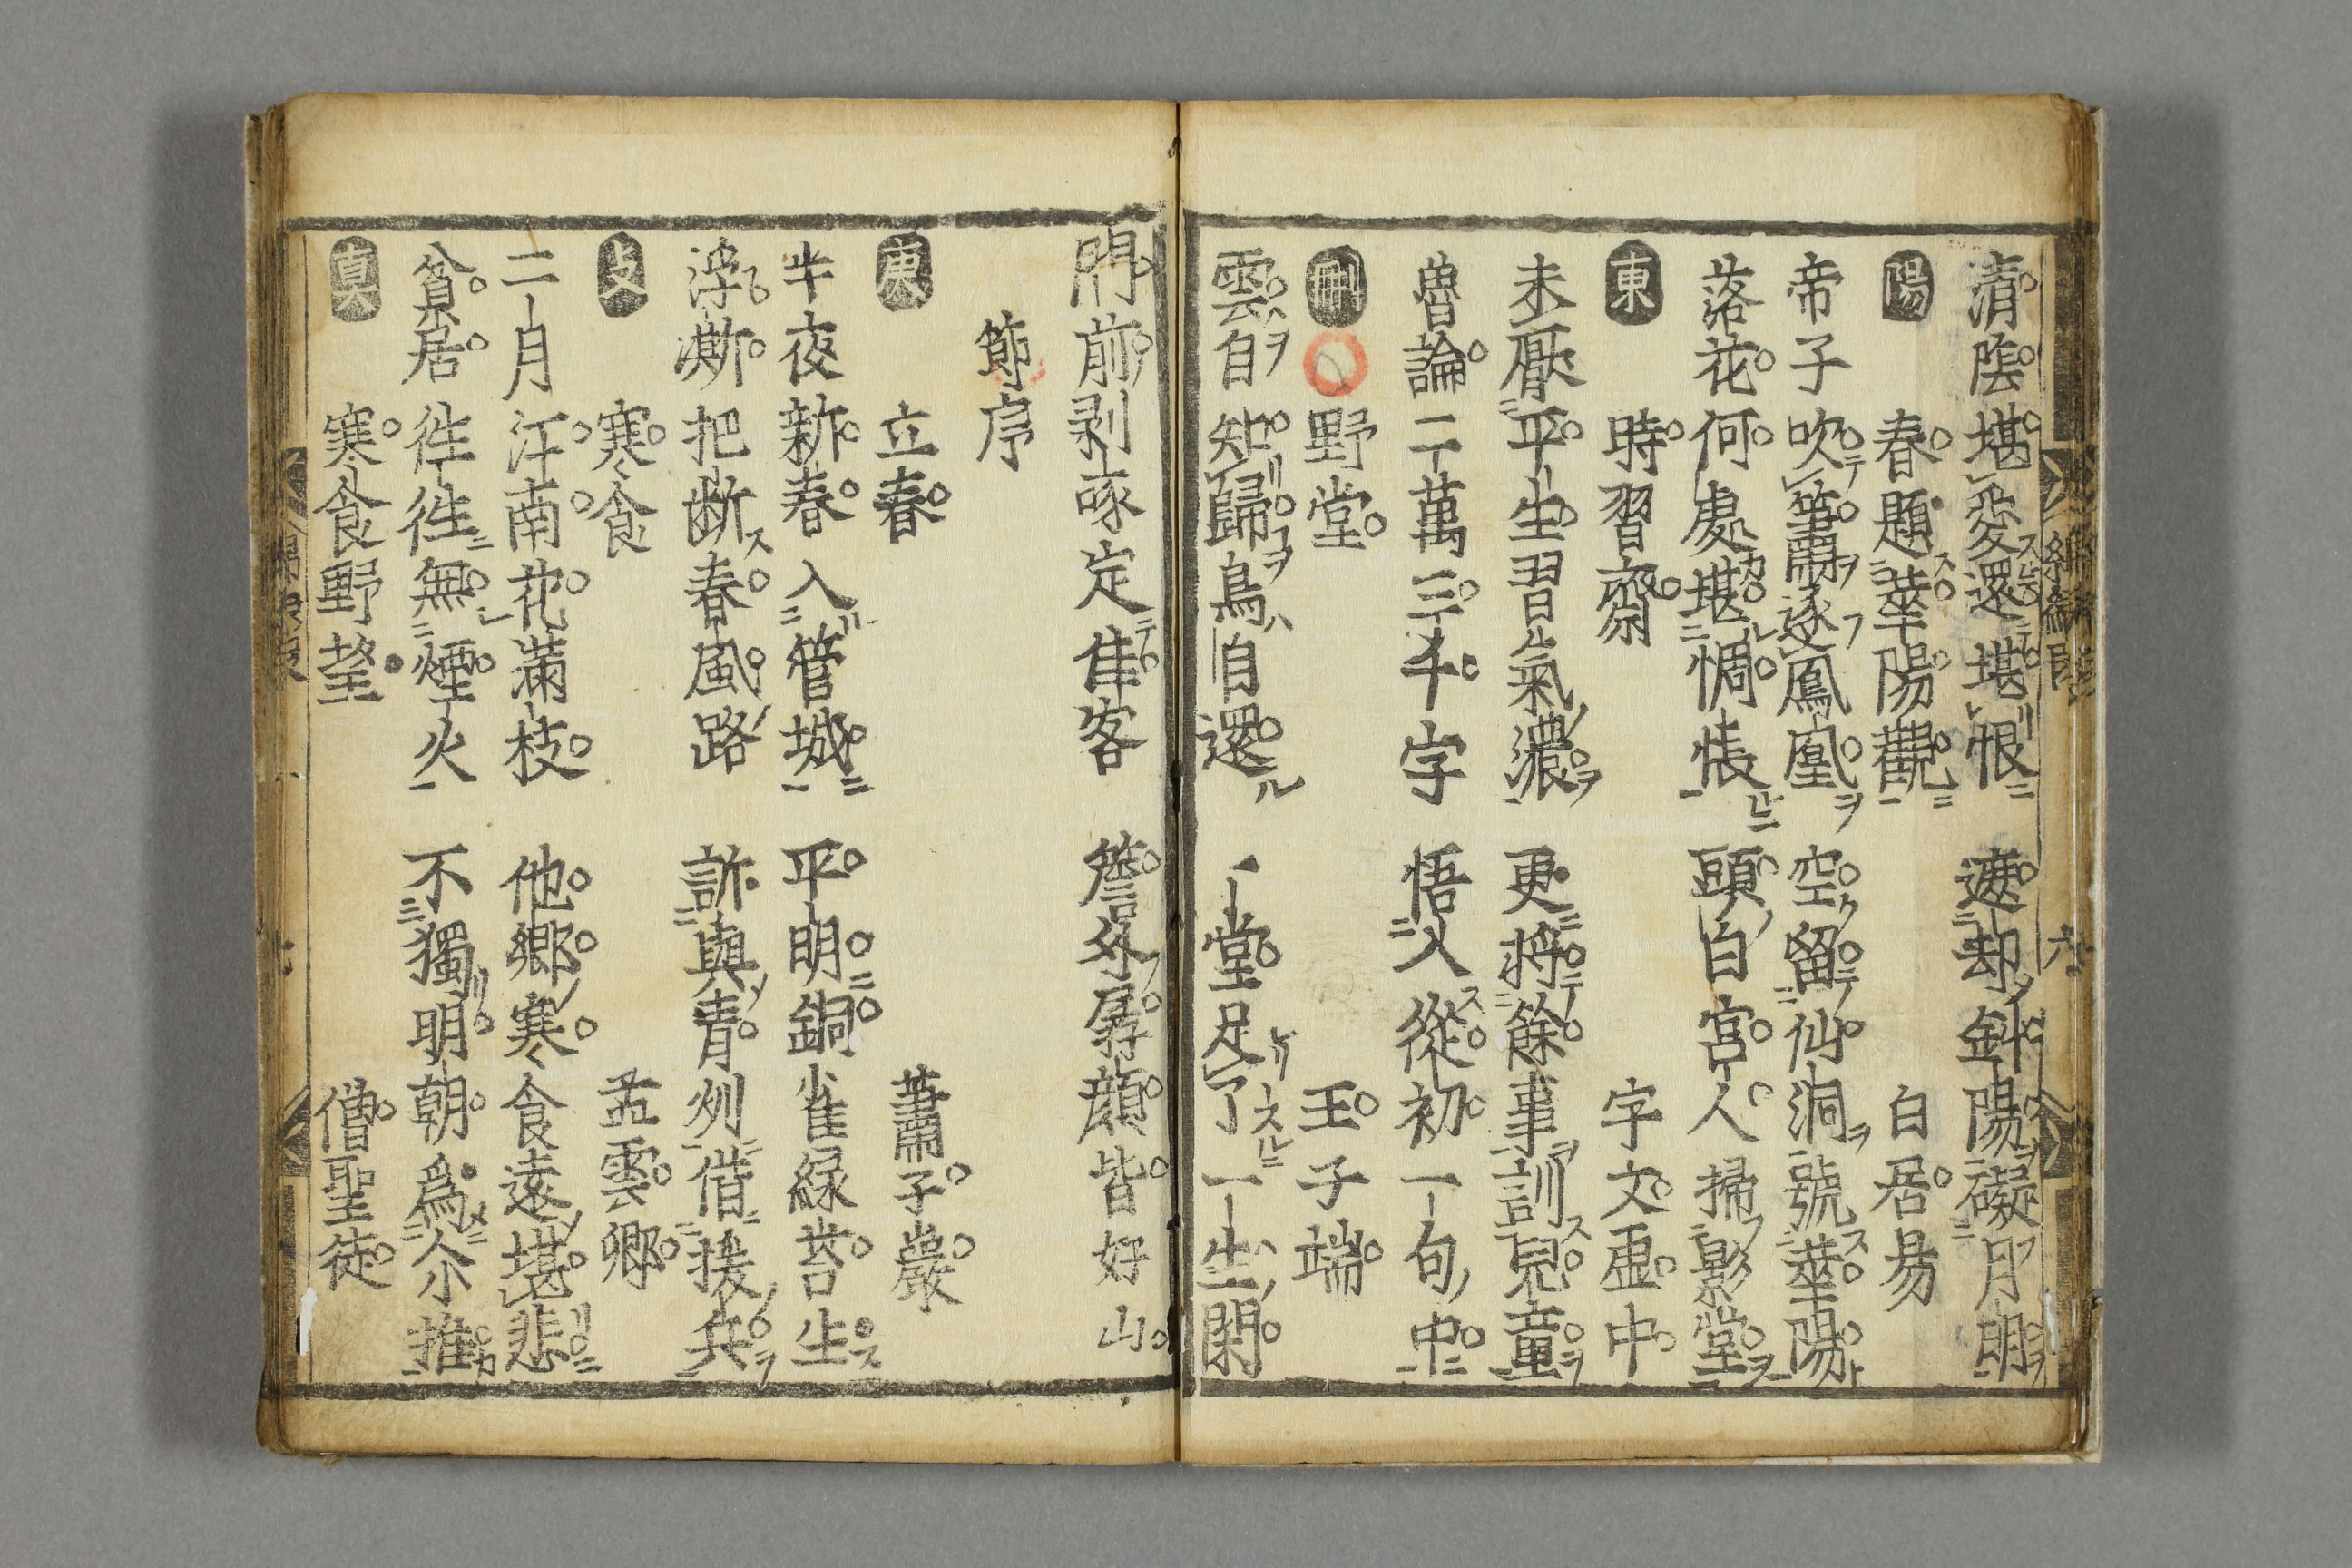 清陰堪愛還堪恨　遮却斜陽礙月明
陽　春題華陽觀　白居易
帝子吹簫逐鳳凰　空留仙洞號華陽
落花何處堪惆悵　頭白宮人掃影堂
東　時習齋　字文虛中
未厭平生習氣濃　更將餘事訓兒童
魯論二萬三千字　悟入從初一句中
刪　野堂　王子端
雲自知歸鳥自還　一堂足了一生閑
門前剥啄定隹客　簷外孱顔皆好山
節序
庚　立春　蕭子嚴
半夜新春入管城　平明銅雀緑苔生
浮澌把断春風路　訴與青州借援兵
支　寒食　孟雲卿
二月江南花滿枝　他鄉寒食遠堪悲
貧居往往無煙火　不獨明朝爲介推
真　寒食野望　僧聖徒
六